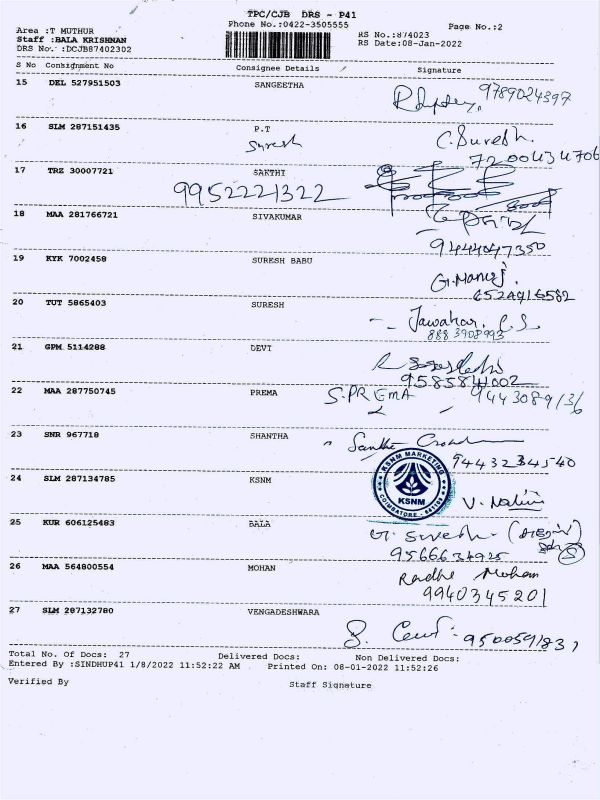 TPC/CJB DRS - P41
Phone No.:0422-3505555
Page No.:2
Area :T MUTHUR
Staff :BALA KRISHNAN
DRS No. :DCJB87402302
RS No.:874023
RS Date:08-Jan-2022
S No Consignment No Consignee Details Signature
15 DEL 527951503 SANGEETHA
9789024397
16 SLM 287151435 P.T
Suresh C.Suresh.
7200434706
17 TRZ 30007721 SAKTHI
9952221322
18 MAA 281766721 SIVAKUMAR
9444047350
19 KYK 7002458 SURESH BABU
G.Manoj.
20 TUT 5865403 SURESH
Jawahar. C.S.
8883908993
21 GPM 5114288 DEVI
9585841002
22 MAA 287750745 PREMA S.PREMA 9443089136
23 SNR 967718 SHANTHA
9443234540
24 SLM 287134785 KSNM
KSNM MARKETING
KSNM
COIMBATORE - 641103
V. Nalini
25 KUR 606125483 BALA
G. Suresh.
9566634925
26 MAA 564800554 MOHAN Radhe Mohan
9940345201
27 SLM 287132780 VENGADESHWARA
9500591831
Total No. Of Docs: 27 Delivered Docs: Non Delivered Docs:
Entered By :SINDHUP41 1/8/2022 11:52:22 AM Printed On: 08-01-2022 11:52:26
Verified By Staff Signature